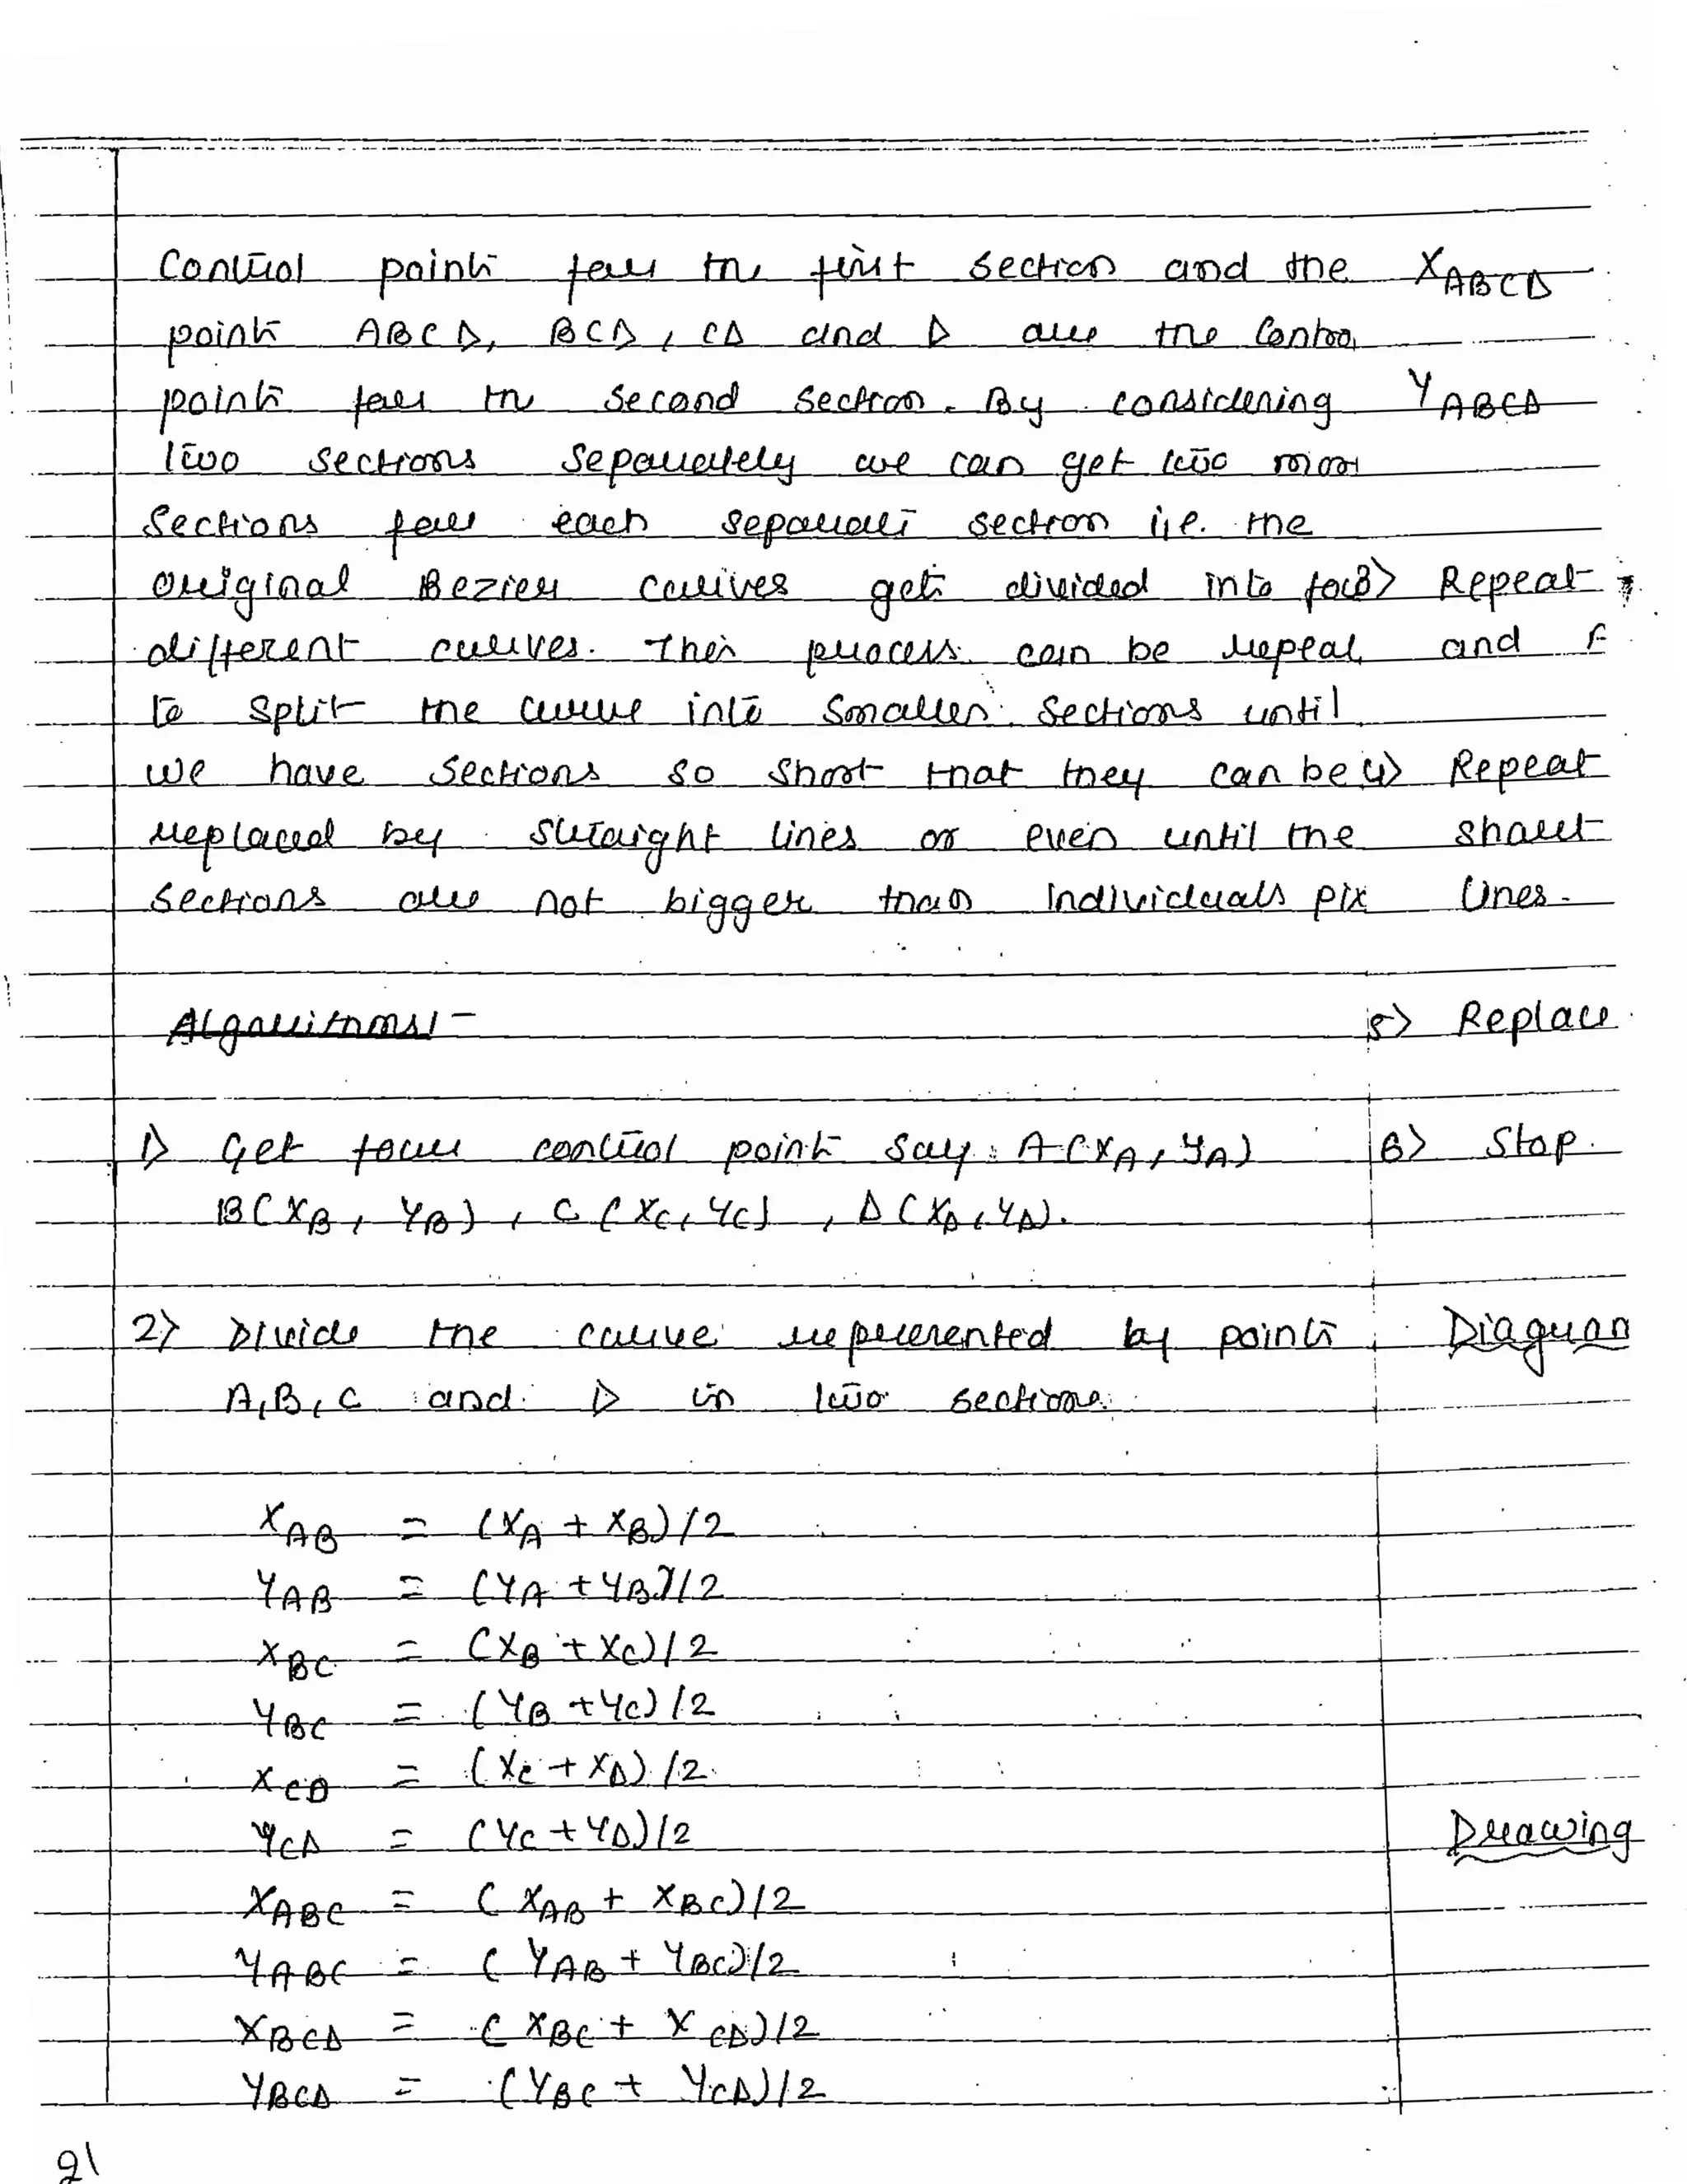 Control points for the first section and the
points ABCD, BCD, CD and D are the Contro
points for the second section. By considering
two sections separately we can get two mor
sections for each separate section i.e. the
original Bezier curves gets divided into fo
different curves. This process can be repeat
to split the curve into smaller sections until
we have sections so short that they can be
replaced by straight lines or even until the
sections are not bigger than individuals pix
Algorithms:-
1> Get four control points say A(XA, YA)
B(XB, YB), C(XC, YC), D(XD, YD).
2> Divide the curve represented by points
A, B, C and D in two sections.
XAB = (XA + XB)/2
YAB = (YA + YB)/2
XBC = (XB + XC)/2
YBC = (YB + YC)/2
XCD = (XC + XD)/2
YCD = (YC + YD)/2
XABC = (XAB + XBC)/2
YABC = (YAB + YBC)/2
XBCD = (XBC + XCD)/2
YBCD = (YBC + YCD)/2
21
XABCD
YABCD
3> Repeat
and
4> Repeat
short
lines.
5> Replace
6> Stop.
Diagram
Drawing